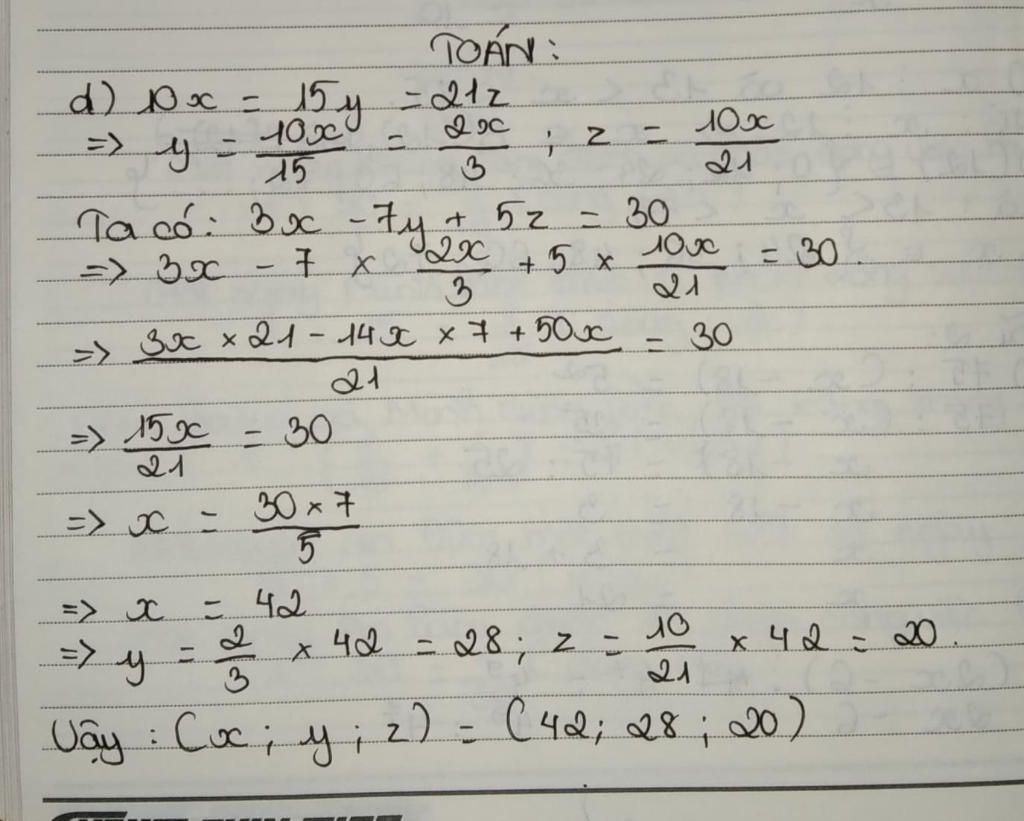 TOÁN:
d) 10x = 15y = 21z
=> y = 10x/15 = 2x/3 ; z = 10x/21
Ta có: 3x - 7y + 5z = 30
=> 3x - 7 × 2x/3 + 5 × 10x/21 = 30.
=> (3x × 21 - 14x × 7 + 50x)/21 = 30
=> 15x/21 = 30
=> x = (30 × 7)/5
=> x = 42
=> y = 2/3 × 42 = 28 ; z = 10/21 × 42 = 20.
Vậy : (x ; y ; z) = (42 ; 28 ; 20)